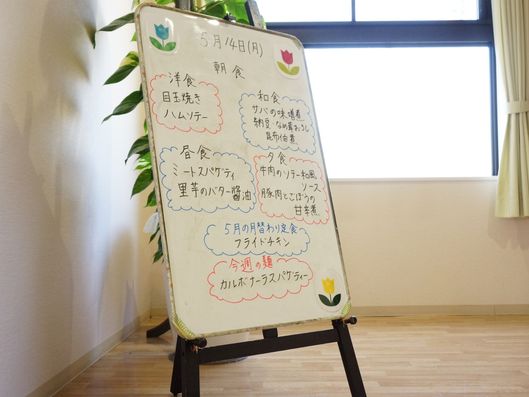 5月14日(月)
朝食
洋食
目玉焼き
ハムソテー
和食
サバの味噌煮
納豆 なめ茸おろし
昆布佃煮
昼食
ミートスパゲティ
里芋のバター醤油
夕食
牛肉のソテー和風
ソース
豚肉とごぼうの
甘辛煮
5月の月替わり定食
フライドチキン
今週の麺
カルボナーラスパゲティー